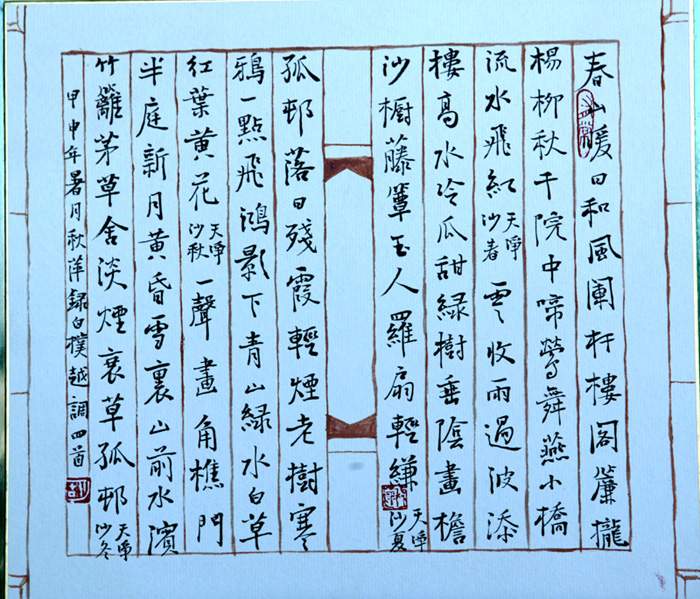 春山暖日和風闌杆樓阁簾攏
楊柳秋千院中啼鶯舞燕小橋
流水飛紅天淨沙春雲收雨過波添
樓高水冷瓜甜綠樹垂陰畫檐
沙橱藤簟玉人羅扇輕縑天淨沙夏
孤邨落日殘霞輕煙老樹寒
鴉一點飛鴻影下青山綠水白草
紅葉黄花天淨沙秋一聲畫角樵門
半庭新月黄昏雪裏山前水濱
竹籬茅草舍淡煙衰草孤邨天淨沙冬
甲申年暑月秋萍録白樸越調四首